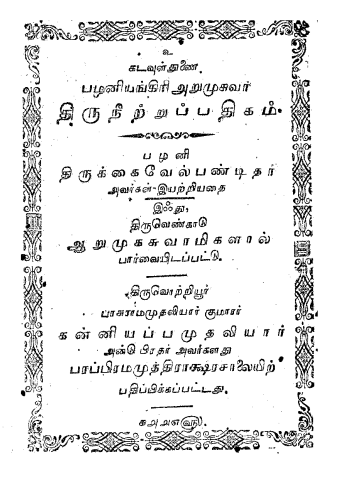 உ
கடவுள் துணை.
பழனியங்கிரி அறுமுகவர்
திருநீற்றுப்பதிகம்.
பழனி
திருக்கைவேல்பண்டிதர்
அவர்கள்-இயற்றியதை
இஃது,
திருவெண்காடு
ஆறுமுகசுவாமிகளால்
பார்வையிடப்பட்டு.
திருவொற்றியூர்
பரசுராமமுதலியார் குமாரர்
கன்னியப்பமுதலியார்
அண்டு பிரதர் அவர்களது
பரப்பிரமமுத்திராக்ஷரசாலையிற்
பதிப்பிக்கப்பட்டது.